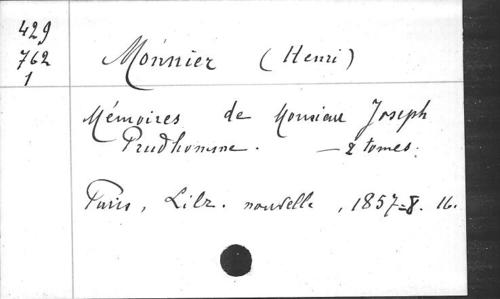 429
762
1
Monnier (Henri)
Mémoires de Monsieur Joseph
Prudhomme. — 2 tomes.
Paris, Libr. nouvelle, 1857-8. 16.